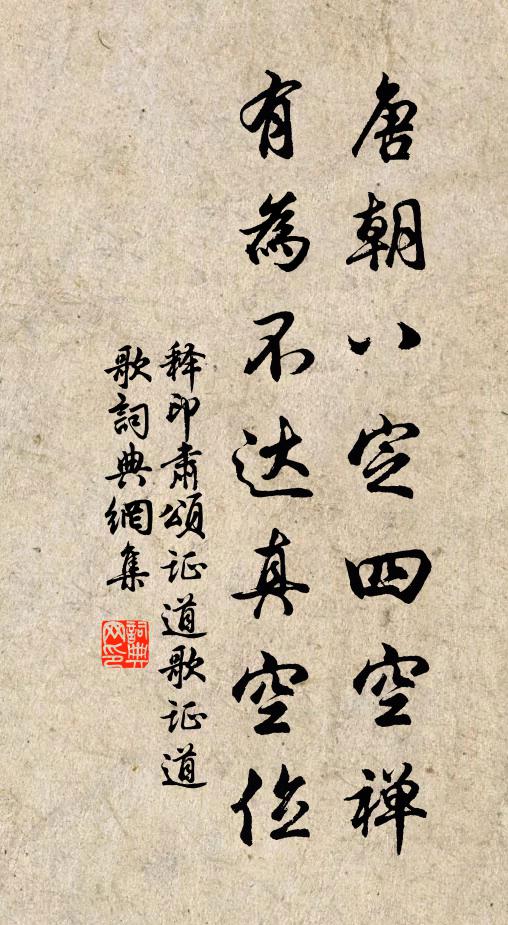 唐朝八定四空禅
有為不达真空俭
释印肃頌证道歌证道
歌詞典網集
詞典
网印